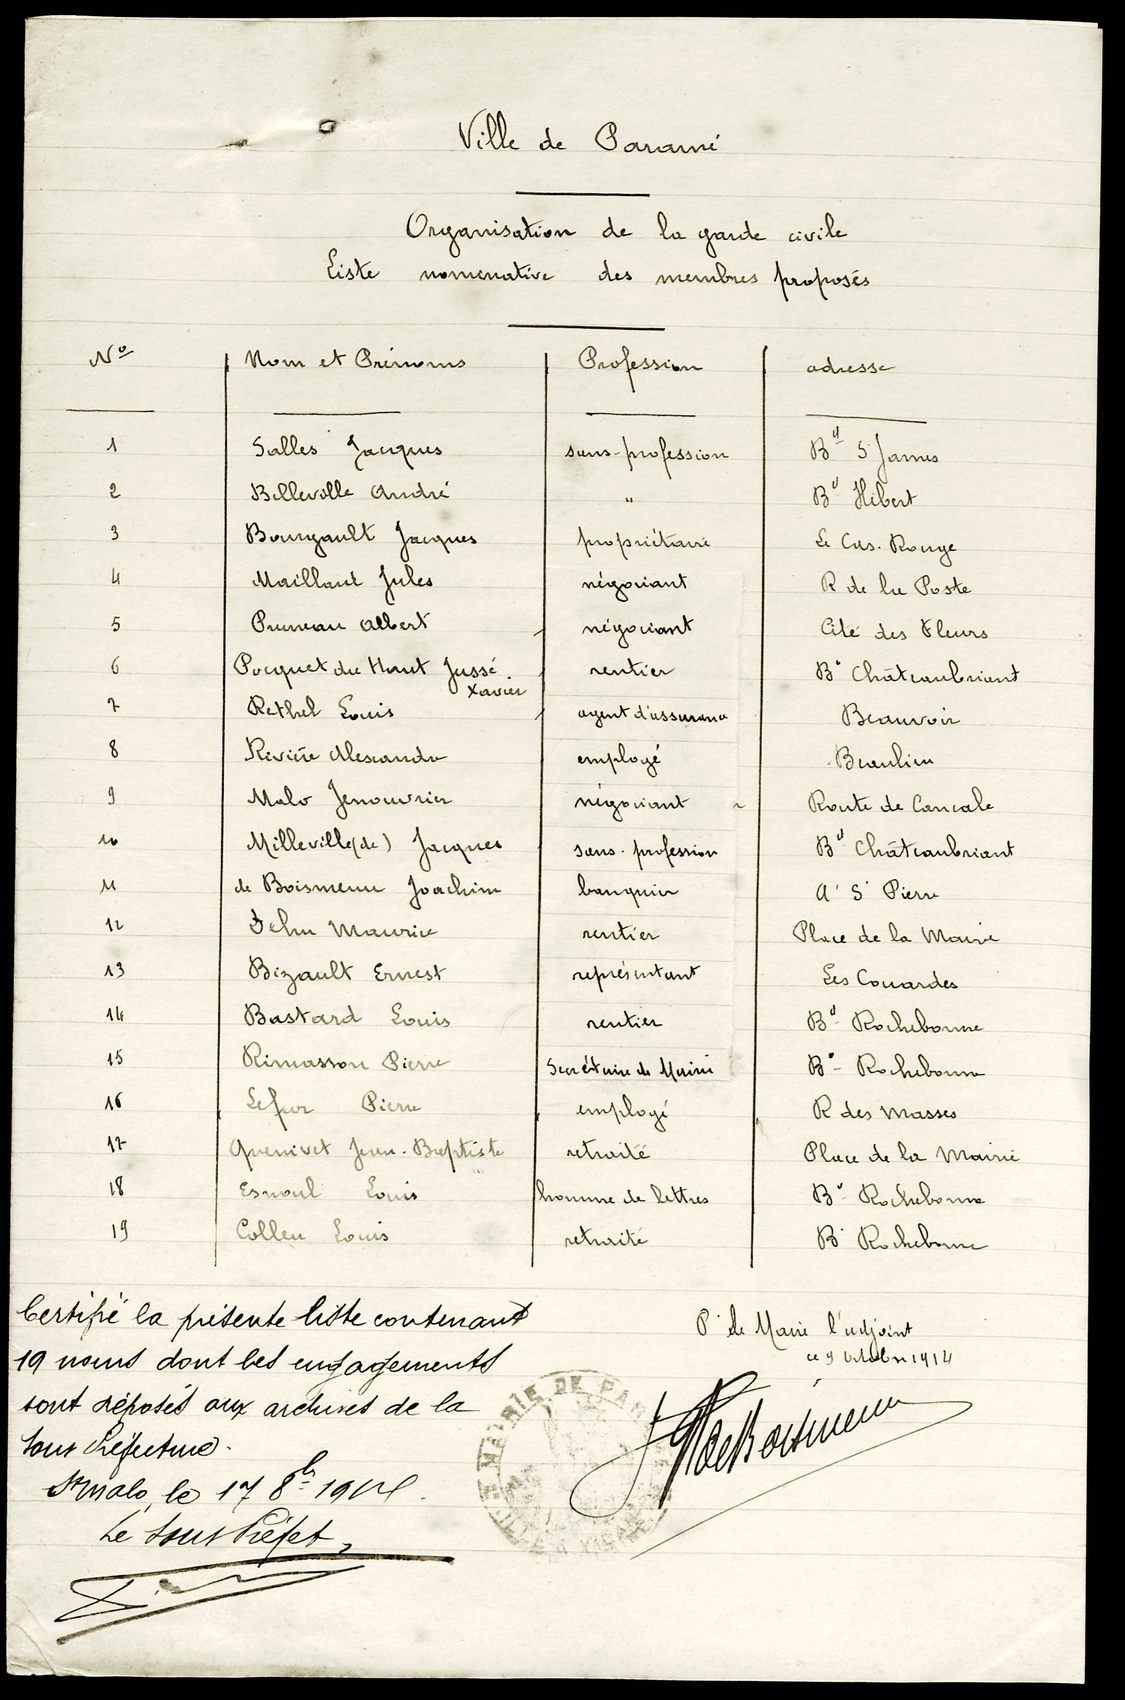 Ville de Paramé
Organisation de la garde civile
Liste nominative des membres proposés
N° Nom et Prénoms Profession adresse
1 Salles Jacques sans-profession Bd St James
2 Belleville André " Bd Hébert
3 Bourgault Jacques propriétaire Le Cas. Rouge
4 Maillard Jules négociant R de la Poste
5 Pruneau Albert négociant Cité des Fleurs
6 Pocquet du Haut Jussé rentier Bd Châteaubriant
Xavier
7 Rethel Louis agent d'assurance Beauvoir
8 Rivière Alexandre employé Beaulieu
9 Malo Jenouvrier négociant Route de Cancale
10 Milleville (de) Jacques sans-profession Bd Châteaubriant
11 de Boismenu Joachim banquier St Pierre
12 Maurice rentier Place de la Mairie
13 Bizault Ernest représentant Les Couardes
14 Bastard Louis rentier Bd Rochebonne
15 Rimasson Pierre Secrétaire de Mairie Bd Rochebonne
16 Lefur Pierre employé R des Masses
17 Quenivet Jean-Baptiste retraité Place de la Mairie
18 Esnoul Louis homme de lettres Bd Rochebonne
19 Colleu Louis retraité Bd Rochebonne
Certifié la présente liste contenant
19 noms dont les engagements
sont déposés aux archives de la
Sous Préfecture.
St Malo, le 17 8bre 1914.
Le Sous Préfet,
Pr le Maire l'adjoint
ce 9 octobre 1914
de Boismenu
MAIRIE DE PARAMÉ